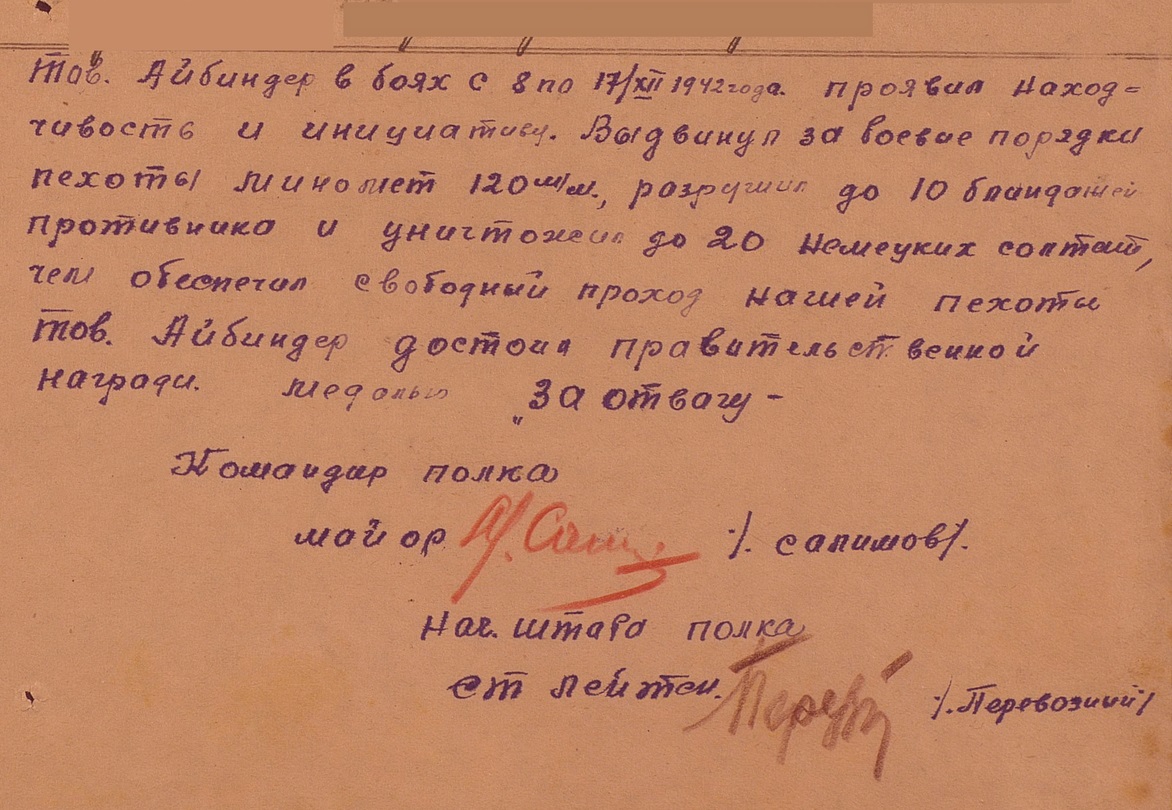 Тов. Айбиндер в боях с 8 по 17/XII 1942 года. проявил наход=
чивость и инициативу. Выдвинул за боевые порядки
пехоты миномет 120 м/м., разрушил до 10 блиндажей
противника и уничтожил до 20 немецких солтат,
чем обеспечил свободный проход нашей пехоты
тов. Айбиндер достоин правительственной
награди. медалью „За отвагу -
Командир полка
майор /. Салимов/.
Нач. штаба полка
ст лейтен. /. Перевозний/